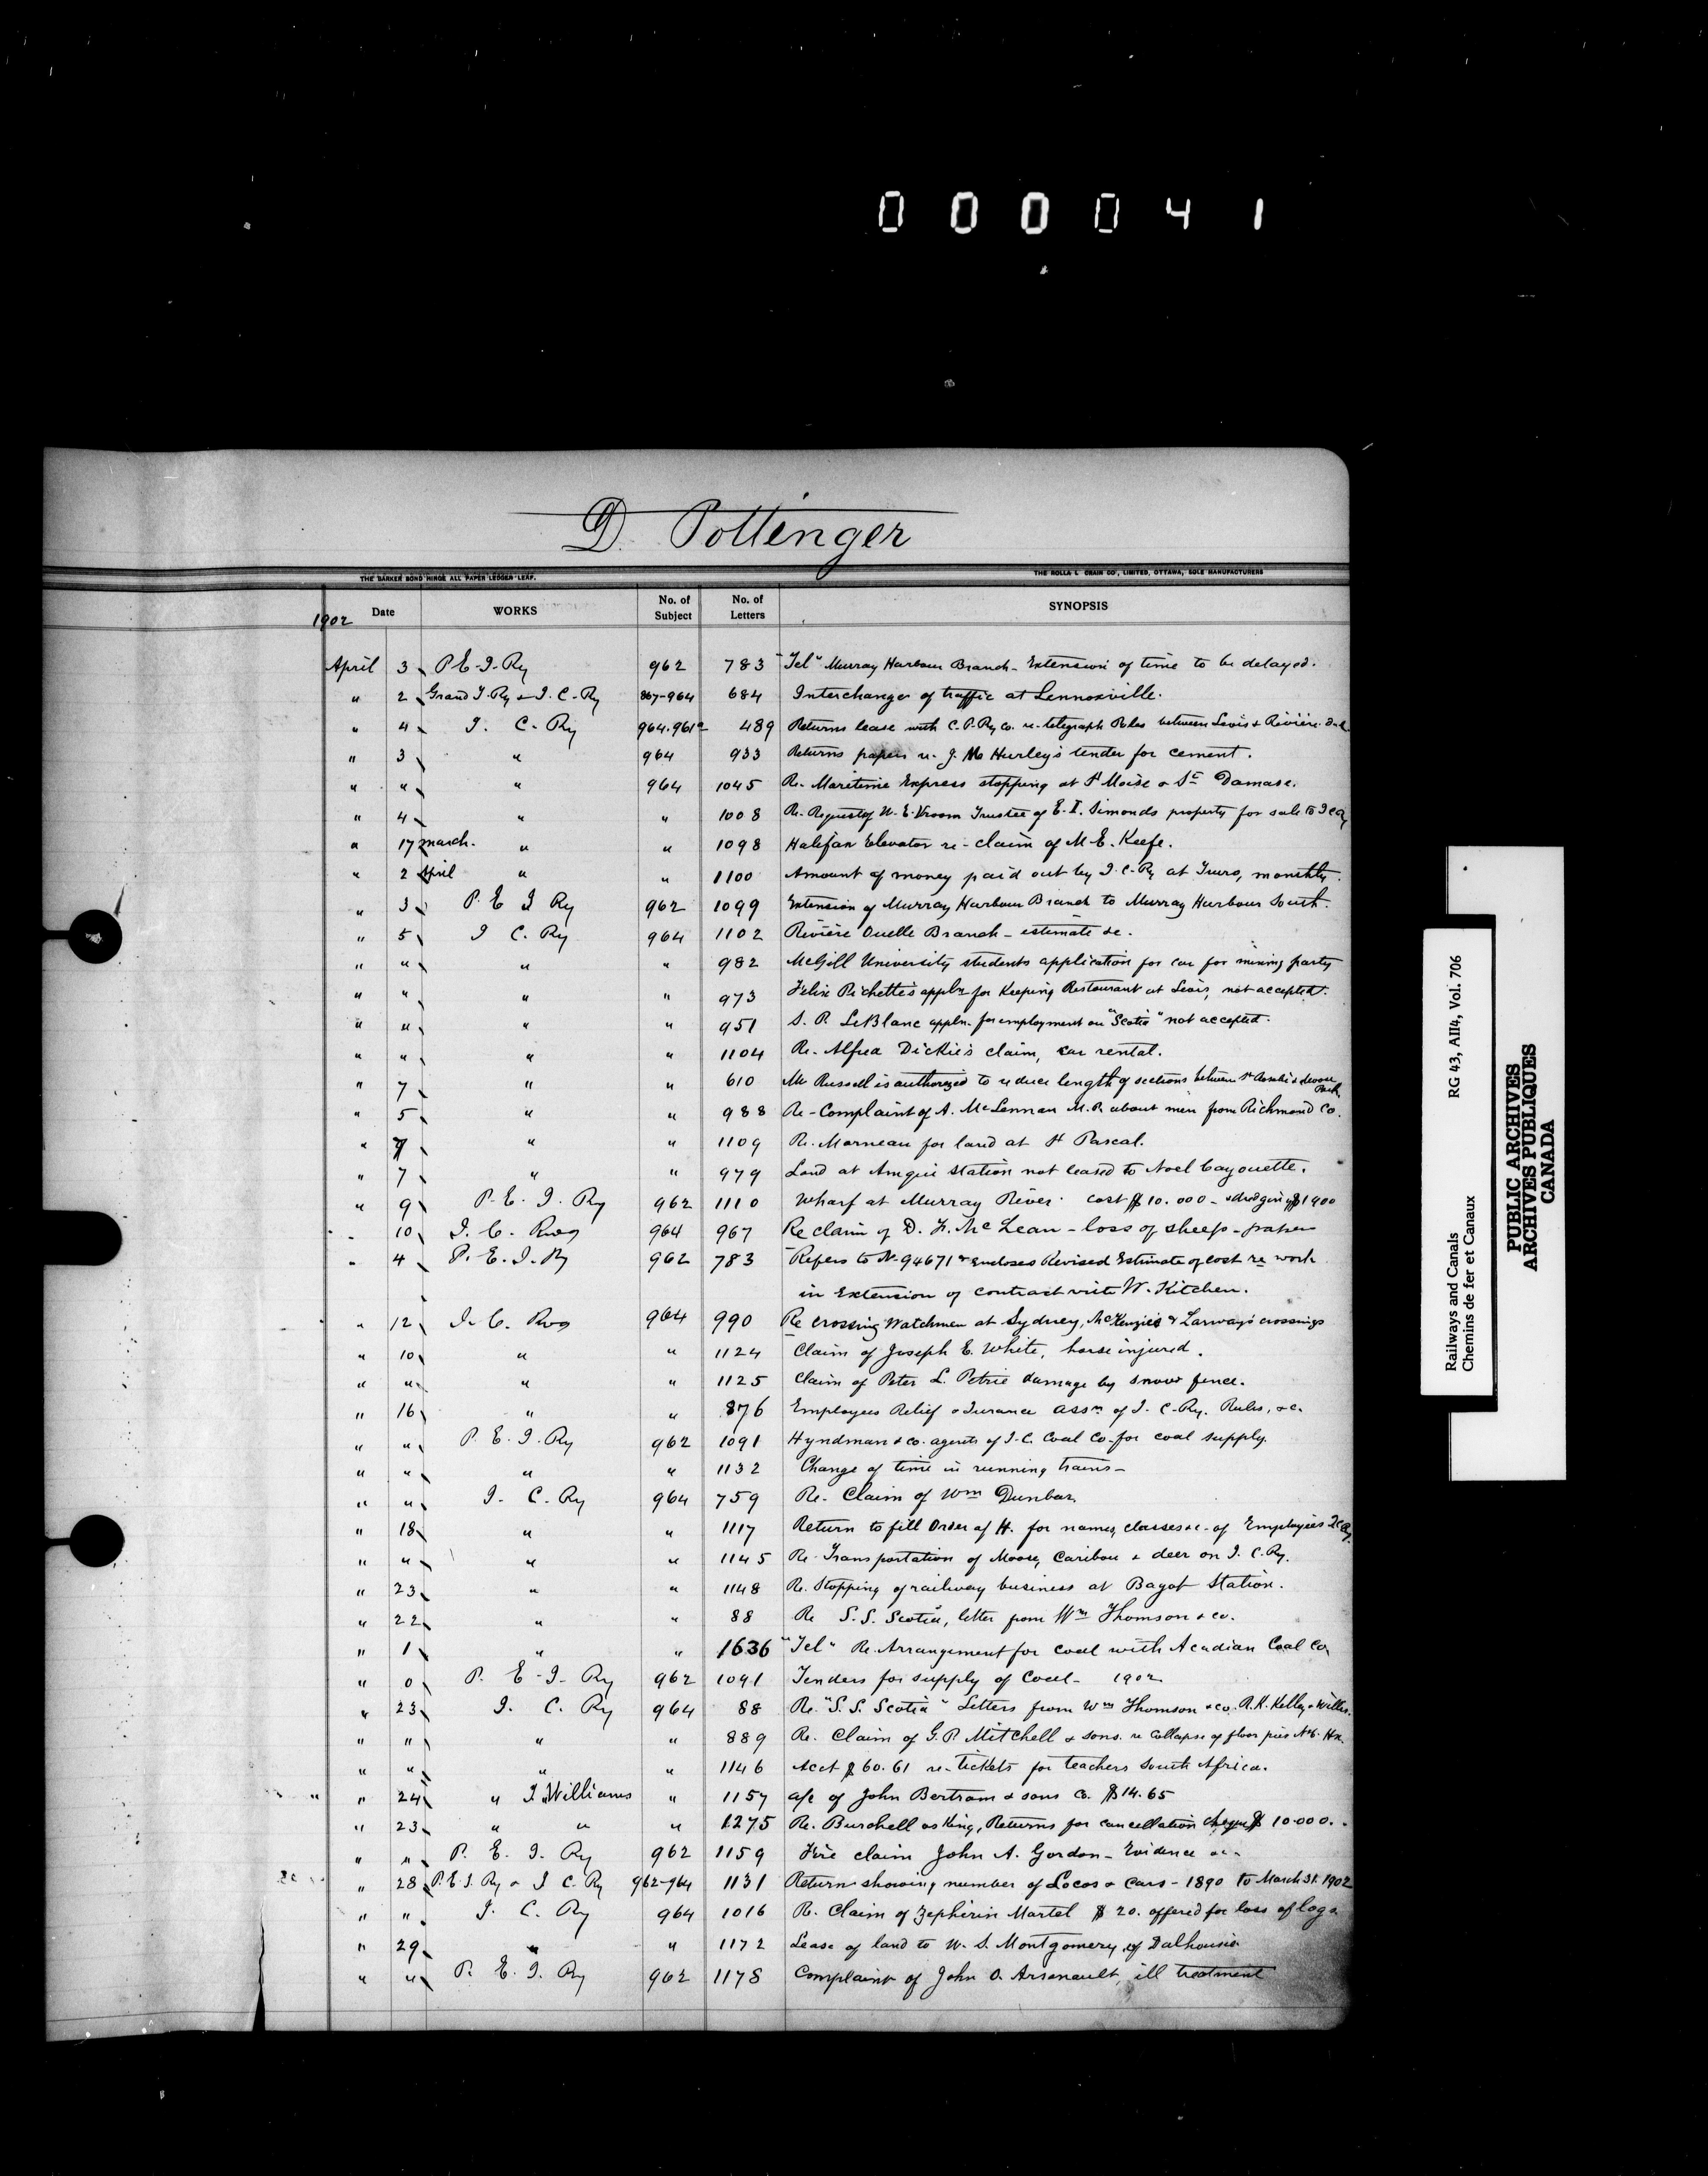 000041
D. Pottenger
THE BARKER BOND HINGE ALL PAPER LEDGER LEAF.
THE ROLLA L. CRAIN CO., LIMITED, OTTAWA, SOLE MANUFACTURERS
1902 Date WORKS No. of Subject No. of Letters SYNOPSIS
April 3 P.E.I.Ry 962 783 "Tel" Murray Harbour Branch - Extension of time to be delayed.
" 2 Grand T. Ry & I.C.Ry 867-964 684 Interchange of traffic at Lennoxville.
" 4 I. C. Ry 964.961 489 Returns lease with C.P.Ry Co. re telegraph Poles between Levis & Rivière
" 3 " 964 933 Returns papers re J. Hurley's tender for cement.
" " " 964 1045 Re. Maritime Express stopping at St Moise & St Damase.
" 4 " " 1008 Re. Request of W. E. Vroom Trustee of E. I. Simonds property for sale to ICRy
" 17 march. " " 1098 Halifax Elevator re- claim of M. E. Keefe.
" 2 April " " 1100 Amount of money paid out by I.C.Ry at Truro, monthly.
" 3 P. E I Ry 962 1099 Extension of Murray Harbour Branch to Murray Harbour South.
" 5 I C. Ry 964 1102 Rivière Ouelle Branch - estimate &c.
" " " " 982 McGill University students application for car for mining party
" " " " 973 Felix Pichette's appln for Keeping Restaurant at Levis, not accepted.
" " " " 951 S. P. LeBlanc appln. for employment on "Scotia" not accepted.
" " " " 1104 Re. Alfred Dickie's claim, car rental.
" 7 " " 610 Mr Russell is authorized to reduce length of sections between St & Moose Park
" 5 " " 988 Re - Complaint of A. McLennan M.P. about men from Richmond Co.
" 7 " " 1109 Re. Morneau for land at St Pascal.
" 7 " " 979 Land at Amqui station not leased to Noel Cayouette.
" 9 P. E. I. Ry 962 1110 Wharf at Murray River. Cost $10.000 - & dredging $1900
" 10 I. C. Rwy 964 967 Re claim of D. F. McLean - loss of sheep - papers
" 4 P. E. I. Ry 962 783 Refers to No 94671 & Encloses Revised Estimate of cost re work
in Extension of contract with W. Kitchen.
" 12 I. C. Rwy 964 990 Re crossing Watchmen at Sydney, McKenzie's & Larway's crossings
" 10 " " 1124 Claim of Joseph E. White, horse injured.
" " " " 1125 Claim of Peter L. Petrie damage by snow fence.
" 16 " " 876 Employees Relief & Insurance Assn of I. C. Ry. Rules, &c.
" " P. E. I. Ry 962 1091 Hyndman & Co. agents of I.C. Coal Co. for coal supply.
" " " " 1132 Change of time in running trains -
" " I. C. Ry 964 759 Re. Claim of Wm Dunbar
" 18 " " 1117 Return to fill Order of H. for names, classes &c. of Employees ICRy.
" " " " 1145 Re. Transportation of Moose, Caribou & deer on I. C. Ry.
" 23 " " 1148 Re. Stopping of railway business at Bagot Station.
" 22 " " 88 Re S. S. Scotia, letter from Wm Thomson & co.
" 1 " " 1636 "Tel" Re Arrangement for coal with Acadian Coal Co
" 0 P. E. I. Ry 962 1091 Tenders for supply of Coal - 1902
" 23 I. C. Ry 964 88 Re. "S. S. Scotia" Letters from Wm Thomson & co. R. K. Kelley &
" " " " 889 Re. Claim of G. P. Mitchell & sons. re Collapse of floor pier No 6. Hx.
" " " " 1146 Acct $60.61 re tickets for teachers South Africa.
" " 24 " T. Williams " 1157 a/c of John Bertram & sons Co. $14.65
" 23 " " " 1275 Re. Burchell vs King, Returns for cancellation cheque $10.000.
" " P. E. I. Ry 962 1159 Fire claim John A. Gordon - Evidence &c.
" 28 P.E.I. Ry & I C. Ry 962-964 1131 Return showing number of Locos & Cars - 1890 to March 31. 1902
" " I. C. Ry 964 1016 Re. Claim of Zephirin Martel $20. offered for loss of logs
" 29 " " 1172 Lease of land to W. S. Montgomery of Dalhousie
" " P. E. I. Ry 962 1178 Complaint of John O. Arsenault, ill treatment
Railways and Canals RG 43, AII4, Vol. 706
Chemins de fer et Canaux
PUBLIC ARCHIVES
ARCHIVES PUBLIQUES
CANADA